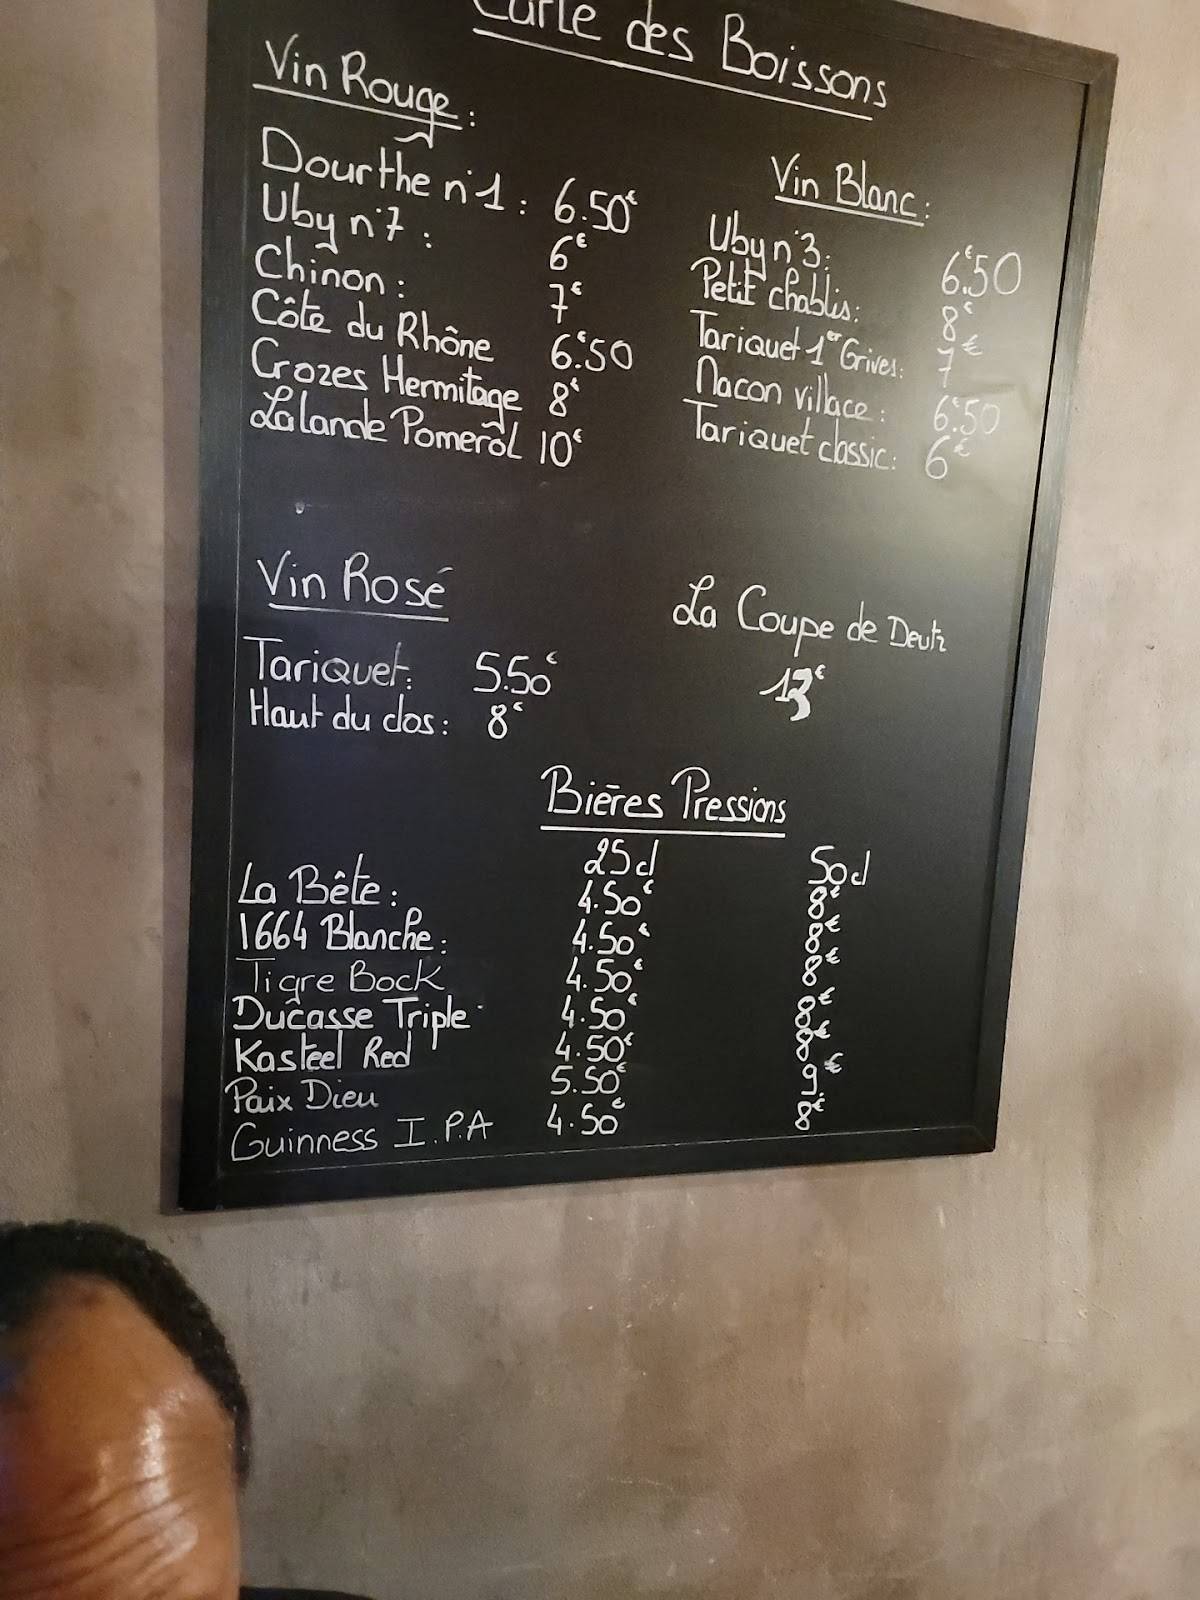 Carte des Boissons
Vin Rouge :
Dourthe n°1 : 6.50€
Uby n°7 : 6€
Chinon : 7€
Côte du Rhône 6€50
Crozes Hermitage 8€
Lalande Pomerol 10€
Vin Blanc :
Uby n°3 : 6€50
Petit chablis : 8€
Tariquet 1er Grives : 7€
Macon village : 6€50
Tariquet classic : 6€
Vin Rosé
Tariquet : 5.50€
Haut du clos : 8€
La Coupe de Deutz
13€
Bières Pressions
25cl 50cl
La Bête : 4.50€ 8€
1664 Blanche : 4.50€ 8€
Tigre Bock 4.50€ 8€
Ducasse Triple 4.50€ 8€
Kasteel Red 4.50€ 8€
Paix Dieu 5.50€ 9€
Guinness I.P.A 4.50€ 8€